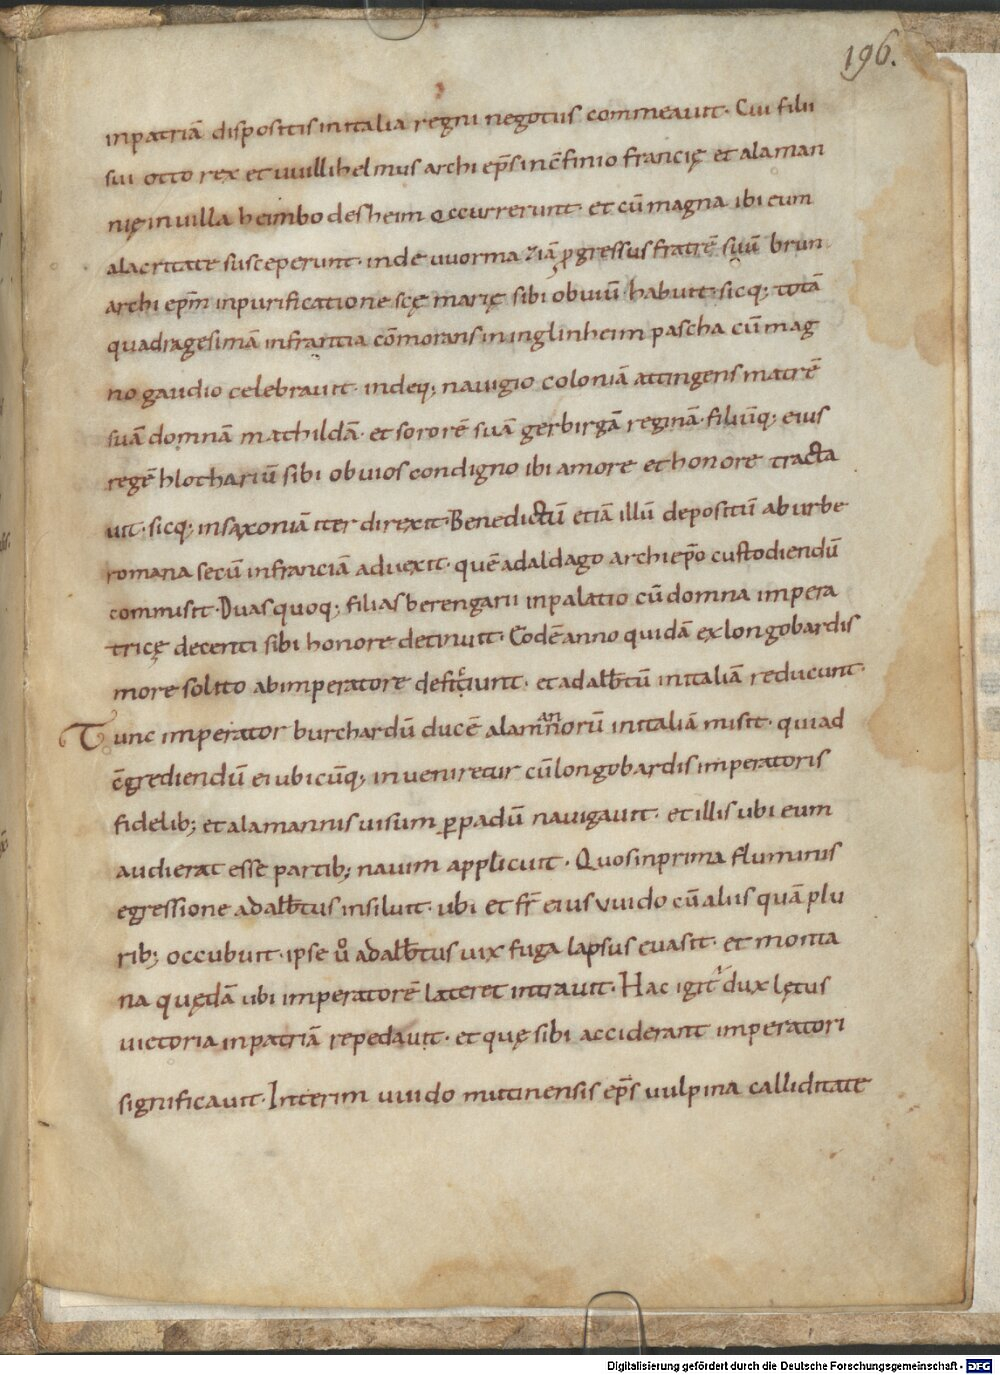 196.
inpatriā dispositis initalia regni negotiis commeavit. Cui filii
sui otto rex et uuillihelmus archi ep̄s inc̄finio francię et alaman
nię in uilla heimbodesheim occurrerunt. et cū magna ibi eum
alacritate susceperunt. inde uuormaziā ꝓgressus fratrē suū brun
archi ep̄m inpurificatione scę marię sibi obuiū habuit. sicq; totā
quadragesimā infrantia cōmorans in inglinheim pascha cū mag
no gaudio celebrauit. indeq; nauigio coloniā attingens matrē
suā domnā mathildā. et sororē suā gerbirgā reginā. filiūq; eius
regē hlothariū sibi obuios condigno ibi amore et honore tracta
uit. sicq; insaxoniā iter direxit. Benedictū etiā illū depositū ab urbe
romana secū infranciā aduexit. quē adaldago archiep̄o custodiendū
commisit. Duas quoq; filias berengarii inpalatio cū domna impera
tricę decenti sibi honore detinuit. Eodē anno quidā ex longobardis
more solito ab imperatore deficiunt. et adalb̄tū initaliā reducunt.
Tunc imperator burchardū ducē alamannorū initaliā misit. qui ad
c̄grediendū ei ubicūq; inueniretur cū longobardis imperatoris
fidelib; et alamannis uisum ꝑ padū nauigauit. et illis ubi eum
audierat esse partib; nauim applicuit. Quos inprima fluminis
egressione adalb̄tus insiluit. ubi et fr̄ eius vuido cū aliis quā plu
rib; occubuit. ipse ů adalb̄tus uix fuga lapsus euasit. et monta
na quędā ubi imperatorē lateret intrauit. Hac igit᷑ dux lętus
uictoria inpatriā repedauit. et quę sibi acciderant imperatori
significauit. Interim uuido mutinensis ep̄s uulpina calliditate
Digitalisierung gefördert durch die Deutsche Forschungsgemeinschaft - DFG